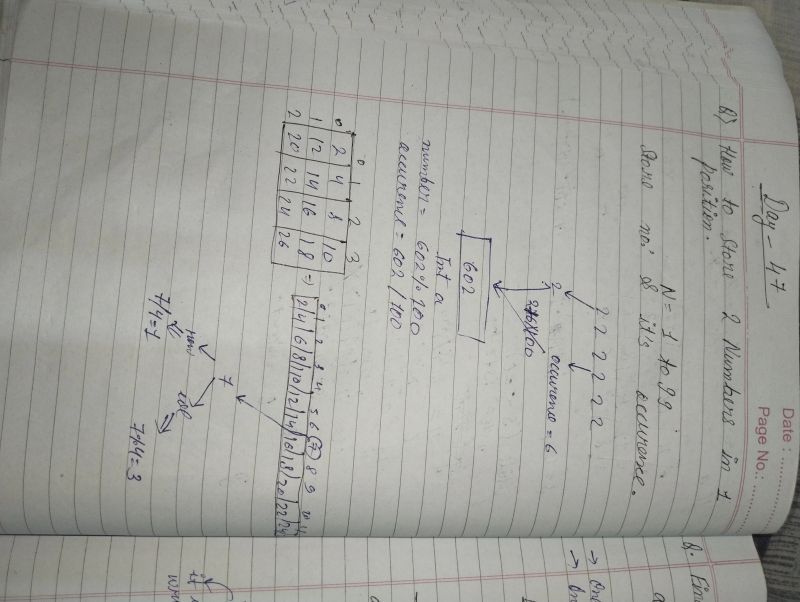 Date :
Page No.:
Day - 47
Q) How to store 2 Numbers in 1
position.
N = 1 to 99
store no. & it's occurence.
2 2 2 2 2 2
2 occurence = 6
602
Int a
number = 602 % 100
occurence = 602 / 100
0 1 2 3
0 2 4 8 10
1 12 14 16 18 ⇒
2 20 22 24 26
0 1 2 3 4 5 6 7 8 9 10 11
2 4 6 8 10 12 14 16 18 20 22 24
7
row col
7/4=1 7%4=3
Q.